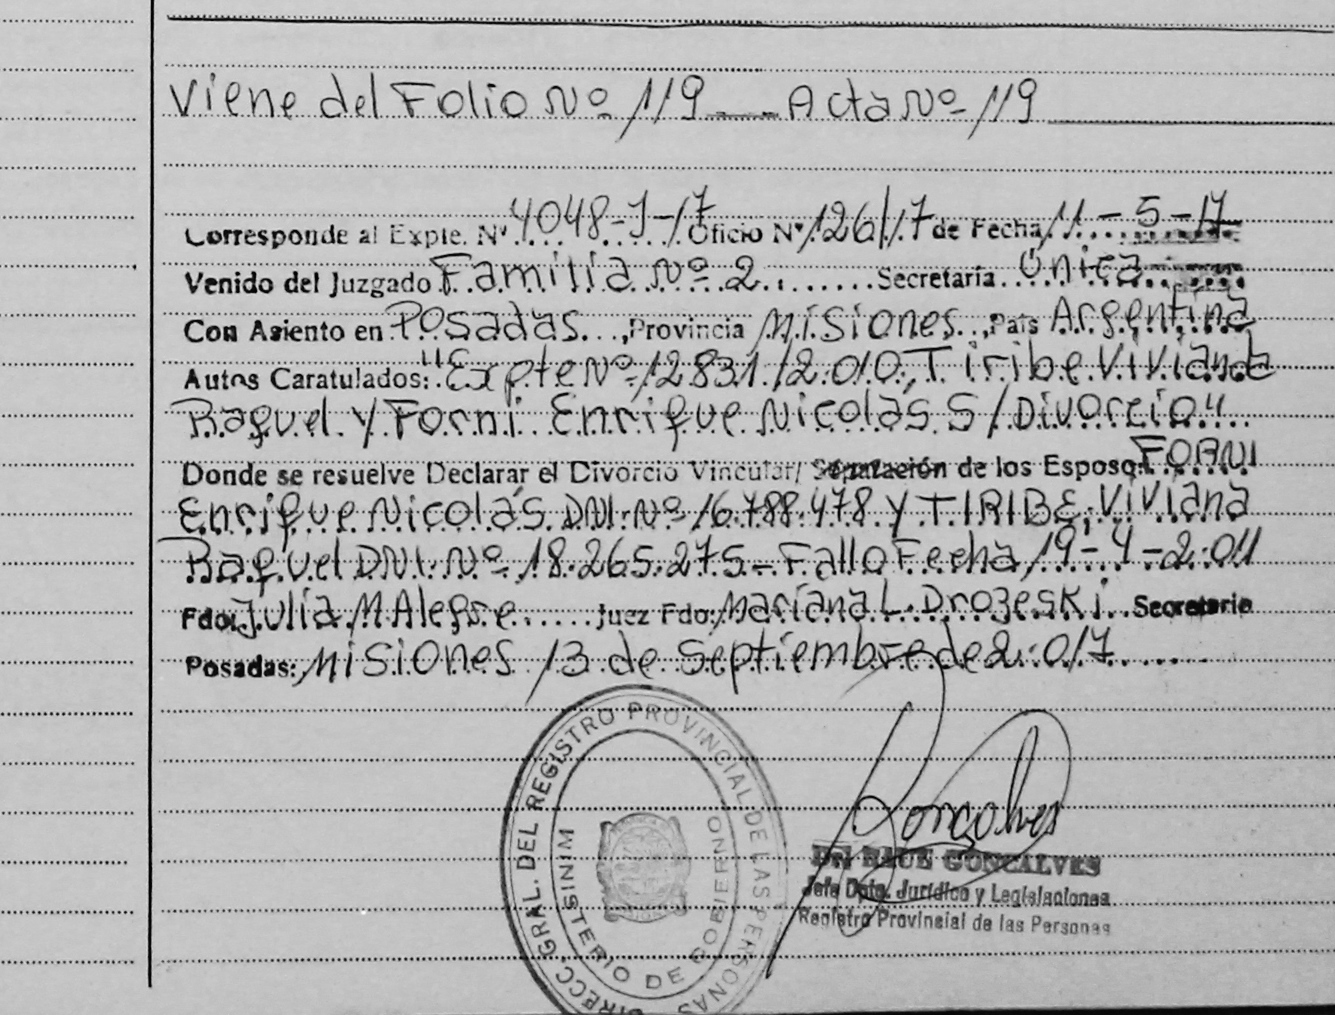 Viene del Folio Nº 119 ___ Acta Nº 119
Corresponde al Expte. Nº 4048-J-17 Oficio Nº 126/17 de Fecha 11-5-17
Venido del Juzgado Familia Nº 2 ........ Secretaría Única
Con Asiento en Posadas..., Provincia Misiones.., País Argentina
Autos Caratulados: "Expte Nº 12831/2.010, Tiribe Viviana
Raquel y Forni Enrique Nicolás S/Divorcio"
Donde se resuelve Declarar el Divorcio Vincular/ Separación de los Esposos FORNI
Enrique Nicolás DNI. Nº 16.788.478 y TIRIBE, Viviana
Raquel DNI. Nº 18.265.275 - Fallo Fecha 19-4-2.011
Fdo: Julia M Alegre ...... Juez Fdo: Mariana L. Drozeski.. Secretario
Posadas: Misiones 13 de Septiembre de 2.017
Goncalves
DR. RAUL GONCALVES
Jefe Dpto. Jurídico y Legislaciones
Registro Provincial de las Personas
DIRECC. GRAL. DEL REGISTRO PROVINCIAL DE LAS PERSONAS
MINISTERIO DE GOBIERNO